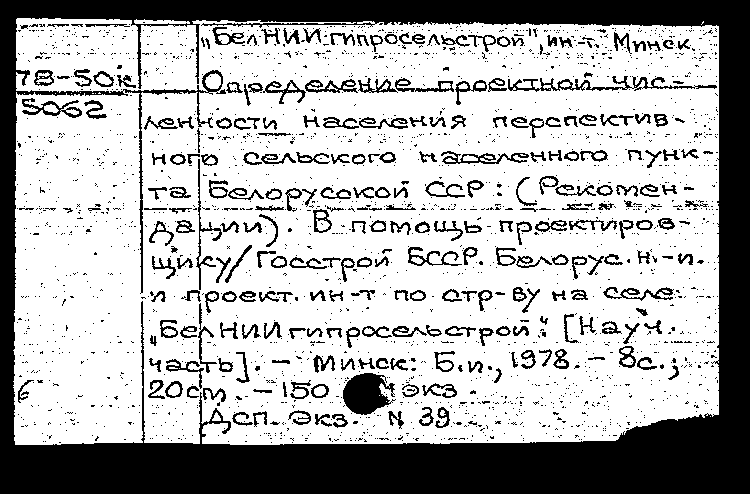 „БелНИИгипросельстрой", ин-т. Минск
78-50к
Определение проектной чис-
5062
ленности населения перспектив-
ного сельского населенного пунк-
та Белорусской ССР: (Рекомен-
дации). В помощь проектиров-
щику/Госстрой БССР. Белорус. н.-и.
и проект. ин-т по стр-ву на селе
„БелНИИгипросельстрой". [Науч.
часть]. – Минск: Б.и., 1978. – 8с.;
20см. – 150 экз.
6
Дсп. Экз. N 39.